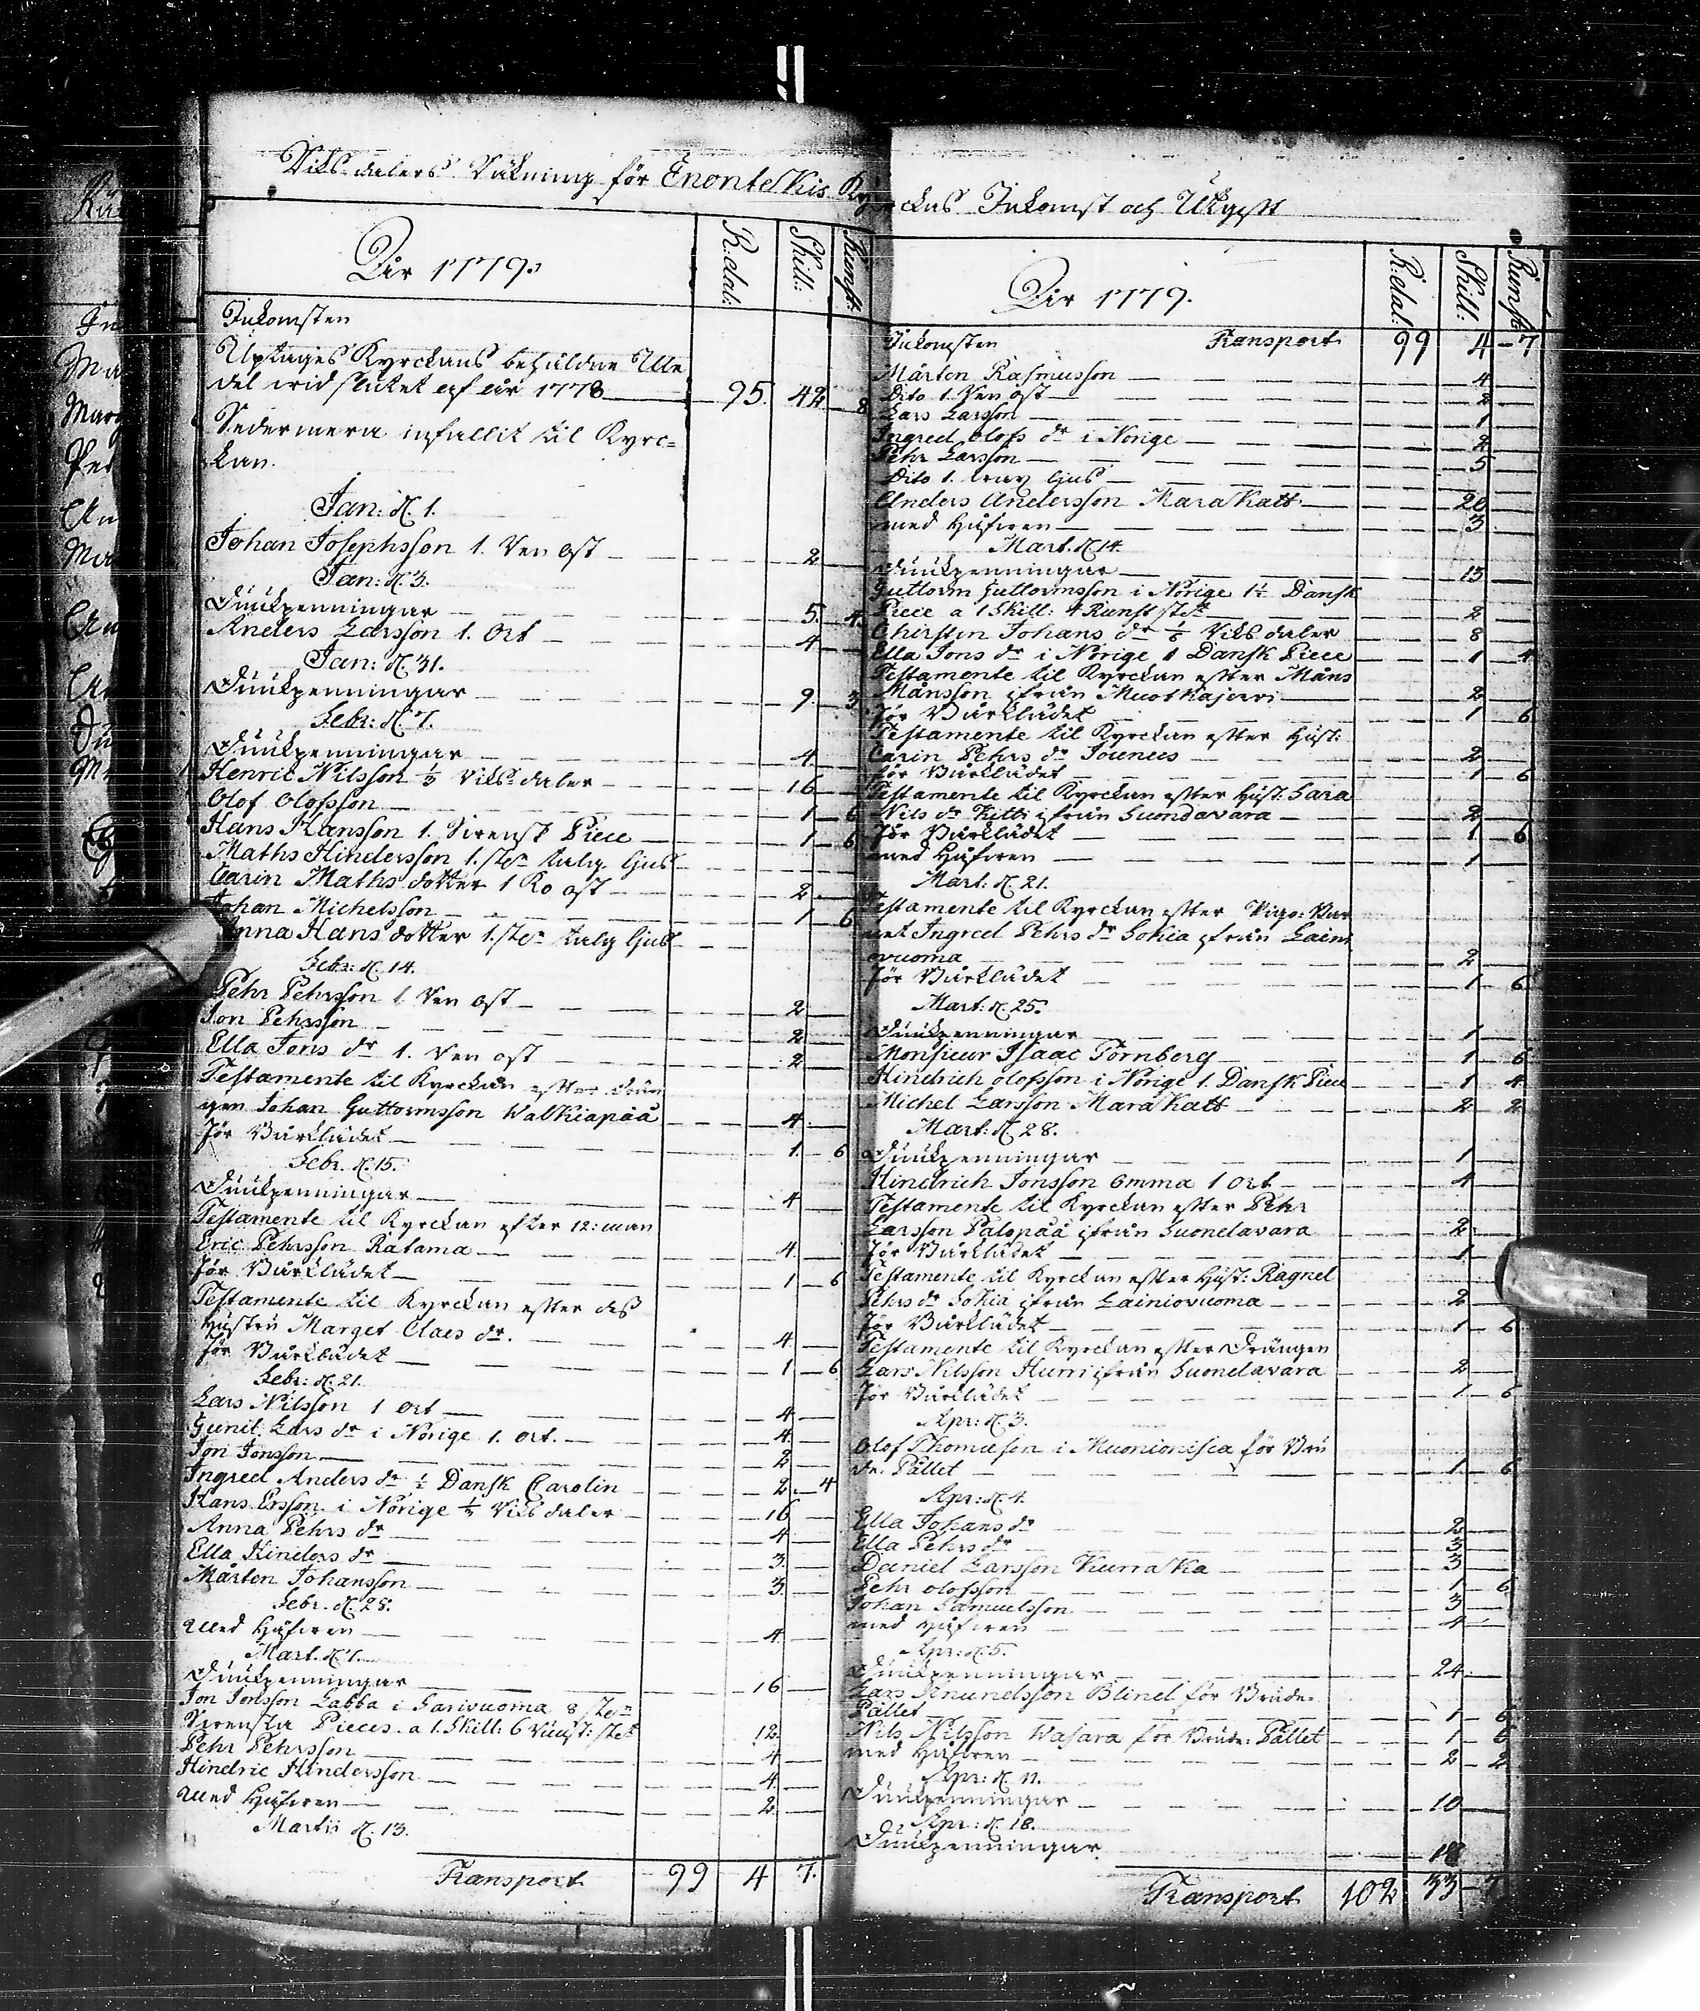 Riksdalers Räkning för Enontekis Kyrckas Inkomst och Utgift
Åhr 1779.
R:dal: Skill: Runst:
Inkomsten
Uptages Kyrckans behåldne Me
del wid slutet af år 1778 95. 42 8
Sedermera infallit til Kyrc=
kan.
Jan: d. 1.
Johan Josephsson 1. Ren ost 2
Jan: d. 3.
Tackpenningar 5. 4.
Anders Larsson 1. Ort 4
Jan: d. 31.
Tackpenningar 9. 3
Febr: d. 7.
Tackpenningar 4.
Henric Nilsson 1/3 Riksdaler 16
Olof Olofsson 1 6
Hans Hansson 1. Svensk Piece 1 6
Maths Hindersson 1. st:n talg ljus
Carin Maths dotter 1 Ko ost 2
Johan Michelsson 1 6
Anna Hans dotter 1. st:n talg ljus
Febr: d. 14.
Pehr Pehrsson 1 Ren ost 2
Jon Pehrsson 2
Ella Jons dr 1. Ren ost 2
Testamente til Kyrckan efter Drän
gen Johan Guttormsson Walkiapää 4
för Bårklädet 1. 6
Febr. d. 15.
Tackpenningar 4
Testamente til Kyrckan efter 12:man
Eric Pehrsson Ratama 4.
för Bårklädet 1 6
Testamente til Kyrckan efter dess
Hustru Marget Claes dr. 4
för Bårklädet 1 6
Febr: d. 21.
Lars Nilsson 1 Ort 4
Gunil Lars dr i Norige 1. Ort. 4.
Jon Jonsson 2
Ingred Anders dr 1/2 Dansk Carolin 2. 4
Hans Ersson i Norige 1/3 Riksdaler 16
Anna Pehrs dr 4
Ella Hinders dr 3.
Mårten Johansson 3.
Febr. d. 28.
Med Håfwen 4
Mart. d. 7.
Tackpenningar 16
Jon Jonsson Labba i Sarivuoma 8 st:n
Svenska Pieces a 1. Skill: 6 Runst: st:t 12.
Pehr Pehrsson 4
Hindric Hindersson 4
Med Håfwen 2
Martii d. 13.
Transport 99 4 7.
Åhr 1779.
R:dal: Skill: Runst
Inkomsten Transport 99 4 7
Mårten Rasmusson 4
Dito 1. Ren ost 2
Lars Larsson 1
Ingred Olofs dr i Norige 2
Pehr Larsson 5
Dito 1. ljus
Anders Andersson Marakatt 20
med Håfwen 3
Mart. d. 14.
Tackpenningar 15
Guttorm Guttormsson i Norige 1 1/2 Dansk
Piece a 1 Skill: 4 Runst st:t 2
Christin Johans dr 1/6 Riksdaler 8
Ella Jons dr i Norige 1 Dansk Piece 1 4
Testamente til Kyrckan efter Måns
Månsson ifrån Muotkajervi 2
för Bårklädet 1 6
Testamente til Kyrckan efter Hust:
Carin Pehrs dr Jounus 2
för Bårklädet 1 6
Testamente til Kyrckan efter Hust: Sara
Nils dr Kitti ifrån Suondavara 2
för Bårklädet 1 6
med Håfwen 1
Mart: d. 21.
Testamente til Kyrckan efter Pigo: Bar
net Ingred Pehrs dr Sokia ifrån Laini
ovuoma 2
för Bårklädet 1 6
Mart: d. 25.
Tackpenningar 1
Monsieur Isaac Törnberg 1 6
Hindrich Olofsson i Norige 1. Dansk Piece 1 4
Michel Larsson Marakatt 2 2
Mart: d. 28.
Tackpenningar 1
Hindrich Jonsson Omma 1 Ort 4
Testamente til Kyrckan efter Pehr
Larsson Palopää ifrån Suondavara 2
för Bårklädet 1
Testamente til Kyrckan efter Hust: Ragnel
Pehrs dr Sokia ifrån Lainiovuoma 2
för Bårklädet 1 6
Testamente til Kyrckan efter Drängen
Lars Nilsson Hurri ifrån Suondavara 2
för Bårklädet 1 6
Apr: d. 3.
Olof Thomæson i Muonionisca för Bru
de Pallet 1 6
Apr: d. 4.
Ella Johans dr 2
Ella Pehrs dr 3
Daniel Larsson Kurraka 3
Pehr Olofsson 1 6
Johan Samuelsson 3
med Håfwen 4
Apr: d. 5.
Tackpenningar 24
Lars Amundsson Blind för Brude-
Pallet 1 6
Nils Nilsson Wasara för Brude: Pallet 1 6
med Håfwen 2 2
Apr: d. 11.
Tackpenningar 10
Apr: d. 18.
Tackpenningar 18
Transport 102 33 7